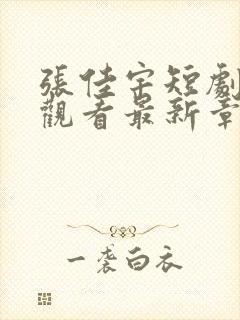 張佳宗短劇
觀看最新章
一袭白衣